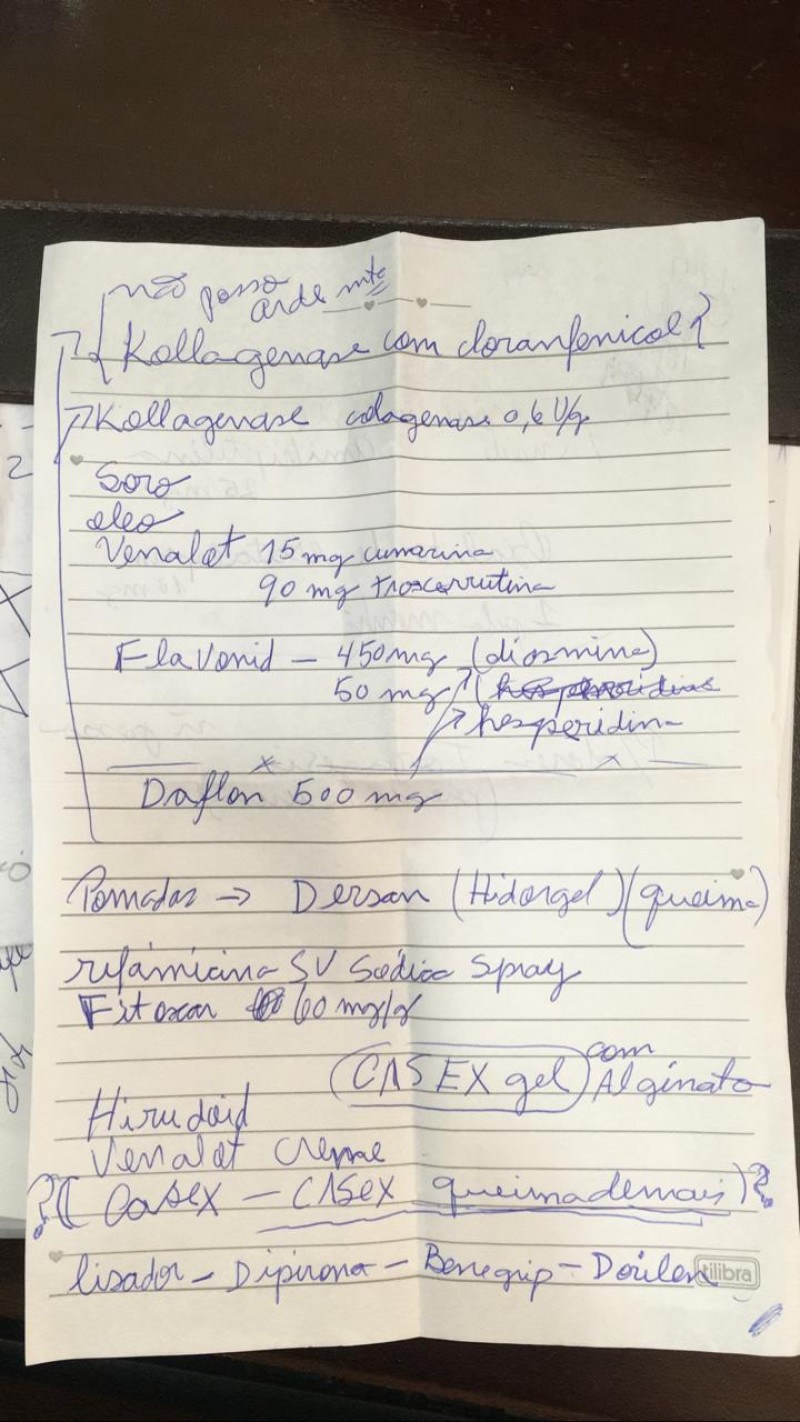 não posso
arde mto
Kollagenase com cloranfenicol?
Kollagenase colagenase 0,6 U/g
Soro
oleo
Venalot 15 mg cumarina
90 mg troxerrutina
Flavonid - 450 mg (diosmina)
50 mg (
hesperidina
Daflon 500 mg
Pomadas → Dersan (Hidorgel) (queima)
rifâmicina SV Sódica Spray
Fitoscar 60 mg/g
CASEX gel com
Alginato
Hirudoid
Venalot creme
?( Casex - CASEX queima demais)?
lisador - Dipirona - Benegrip - Dorilen
tilibra